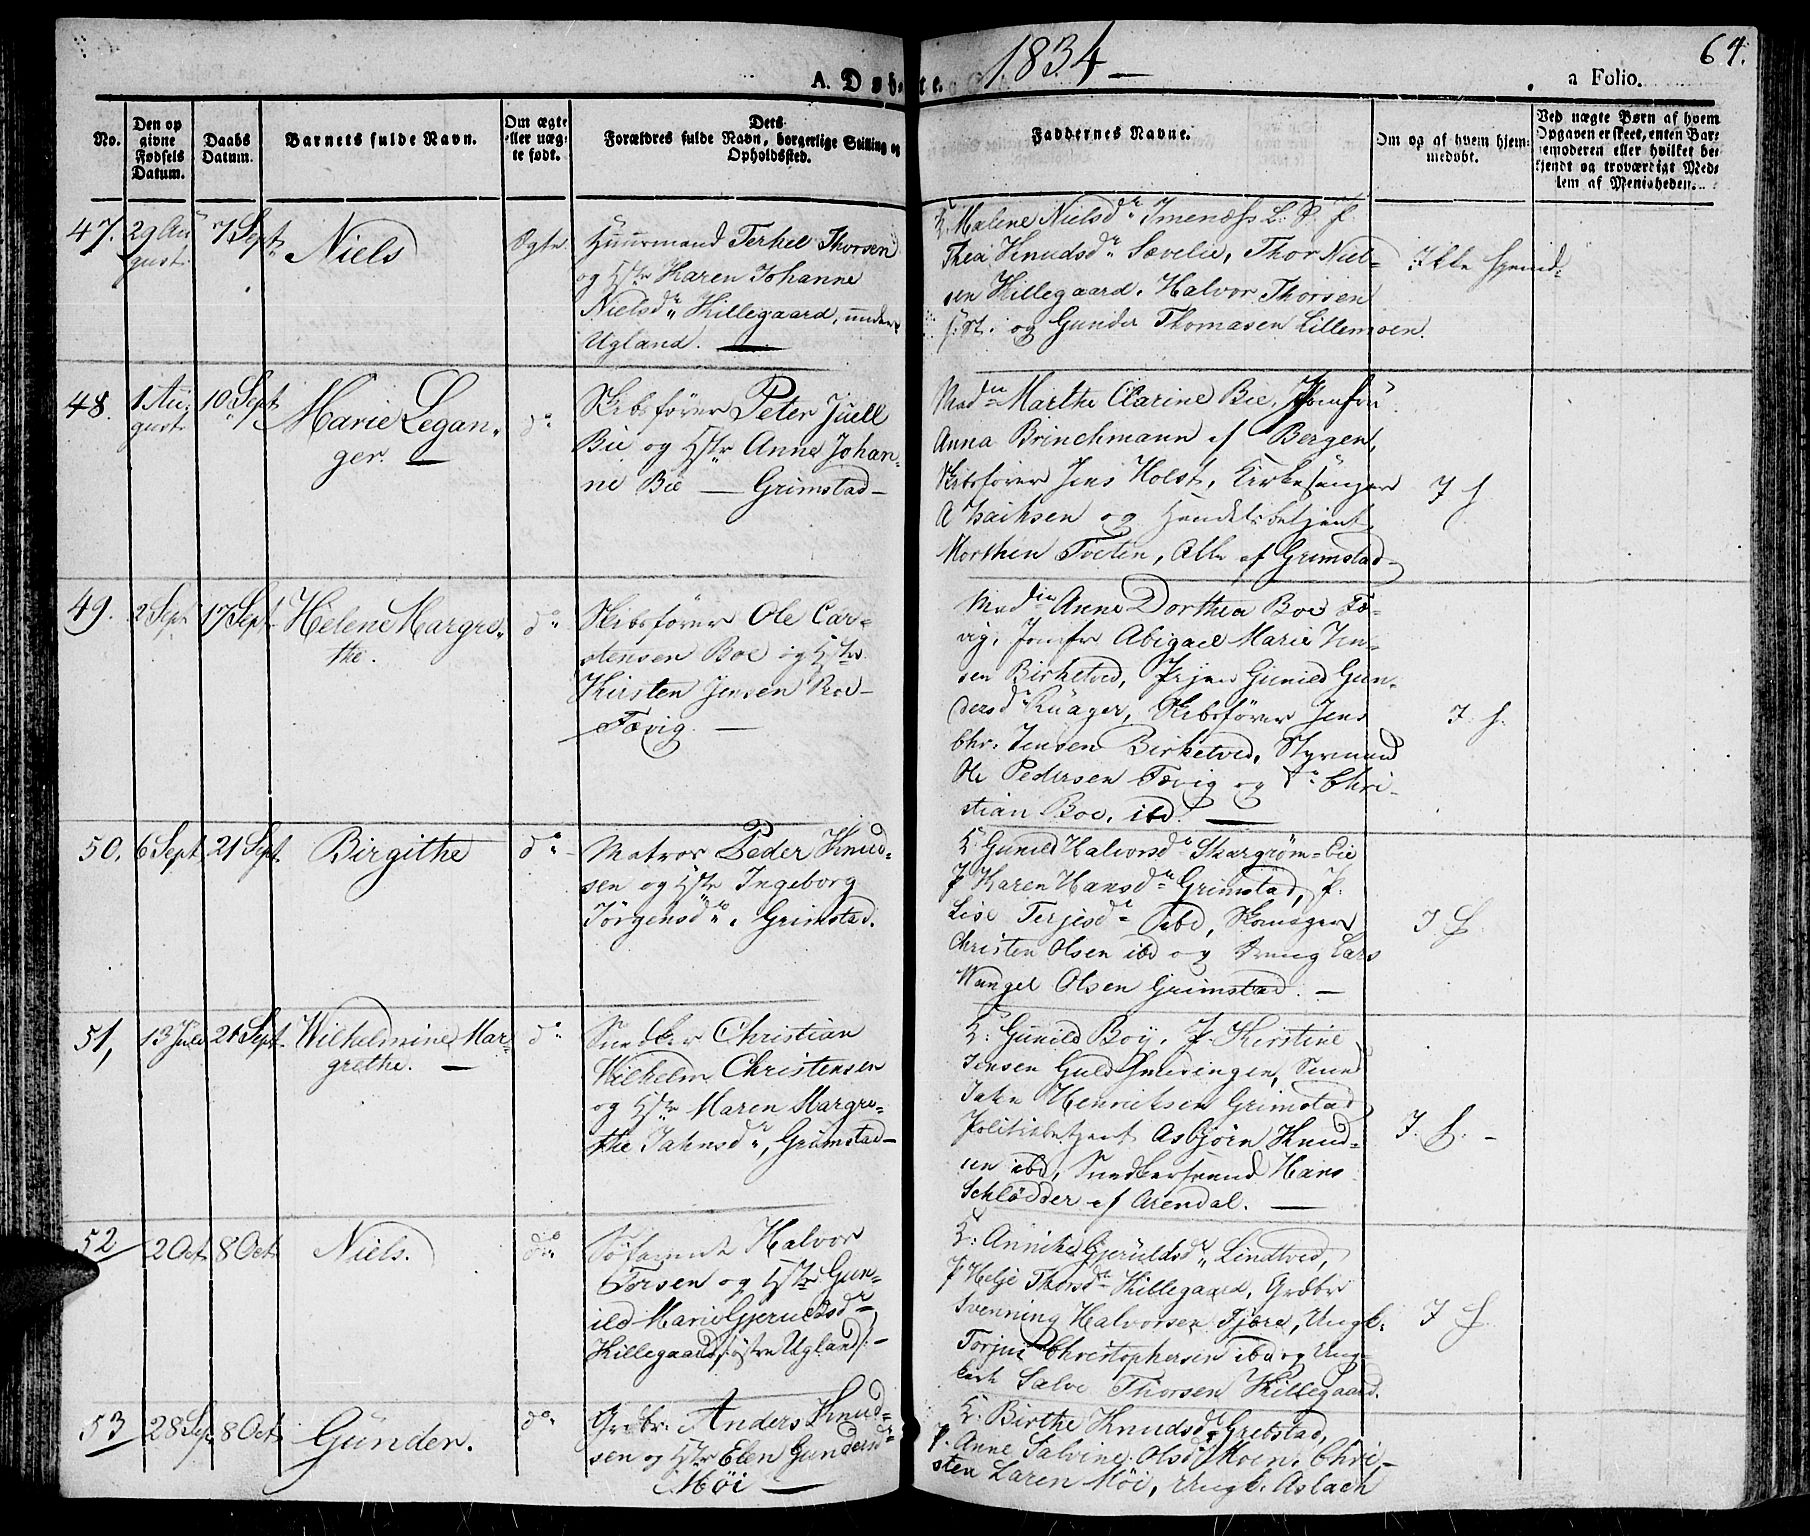 1834
64.
A. Døbte.
a Folio.
No.
Den opgivne Fødsels Datum.
Daabs Datum.
Barnets fulde Navn.
Om ægte eller uægte født.
Dets Forældres fulde Navn, borgerlige Stilling og Opholdssted.
Faddernes Navne.
Om og af hvem hjemmedøbt.
Ved uægte Børn af hvem Opgaven er skeet, enten Barnemoderen eller hvilket bekjendt og troværdigt Medlem af Menigheden.
47. 29 Au
gust
7 Sept
Niels
Ægte
Huusmand Terkel Thorsen
og Hstr Karen Johanne
Nielsdr Killegaard, under
Ugland.
K. Malene Nielsdr Imenæss L. P. P
Thea Knudsdr Sævelie, Thor Niel-
sen Killegaard, Halvor Thorsen
og Gunder Thomasen Lillemoen.
Ikke hjemd-
48. 1 Au
gust
10 Sept
Marie Legan-
ger.
do
Skibsfører Peter Juell
Bie og Hstr Anne Johan-
ne Bie — Grimstad —
Mad. Marthe Clarine Bie, Jomfru
Anna Brinchmann af Bergen,
Skibsfører Jens Holst, Kirkesanger
A Isaiksen og Handelsbetjent
Morthen Toeten, Alle af Grimstad
I h
49. 2 Sept 17 Sept
Helene Margre-
the.
do
Skibsfører Ole Car-
stensen Boe og Hstr
Kirsten Jensen Boe —
Fævig —
Mad Anne Dorthea Boe Fæ-
vig, Jomfr Abigael Marie Jen-
sen Birketved, Pigen Gunild Gun-
dersd Ruager, Skibsfører Jens
Chr. Jensen Birketved, Styrmand
Ole Pedersen Fævig og do Chri-
stian Boe, ibd.
I. h.
50. 6 Sept 21 Sept.
Birgithe
do
Matros Peder Knud-
sen og Hstr Ingeborg
Jörgensdr, Grimstad.
K. Gunild Halvorsdr Skargrøm-Eie
P Karen Hansdr Grimstad, P.
Lise Terjesdr ibd, Skomager
Christen Olsen ibd og Dreng Lars
Wangel Olsen Grimstad. —
I h
51, 13 Juli 21 Sept.
Wilhelmine Mar-
grethe. —
do
Snedker Christian
Wilhelm Christensen
og Hstr Maren Margre-
the Jahnsdr, Grimstad —
K: Gunild Boy, P. Kirstine
Jensen Guldsmedingen, Smed
Jahn Henriksen Grimstad
Politiebetjent Asbjørn Knud-
sen ibd, Snedkersvend Hans
Schlödder af Arendal. —
I. h. —
52 2 Oct 8 Oct
Niels.
do
Halvor
Torsen og Hstr Gun-
ild Marie Gjeruldsdr
Killegaard /: östre Ugland :/ —
K. Anniche Gjeruldsdr Lindtved,
P Helje Thorsdr Killegaard, Grdbr
Svenning Halvorsen Fjære, Ungk.
Torjus Christophersen ibd og Ung-
karl Salve Thorsen Killegaard.
I h
53 28 Sep 8 Oct
Günder.
do
Grdbr. Anders Knud-
sen og Hstr Elen Gundersdr
Møi —
K. Birthe Knudsdr Grebstad,
P. Anne Salvine Olsdr Moen, Chri-
sten Larsen Møi, Ungk. Aslach